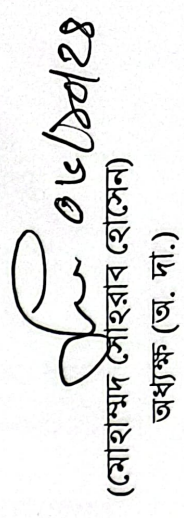 ০৬/১০/২৪
(মোহাম্মদ সোহরাব হোসেন)
অধ্যক্ষ (অ. দা.)